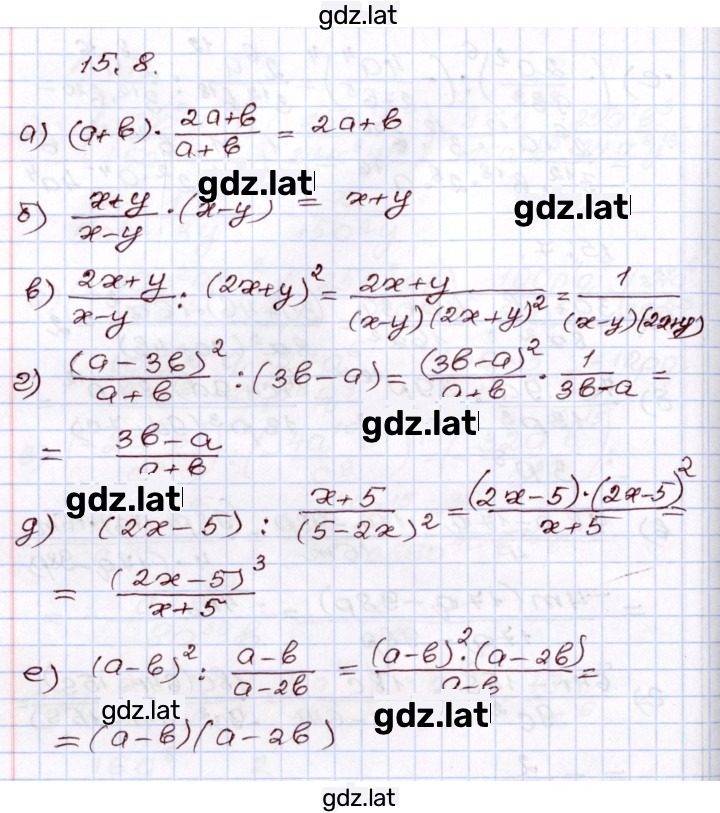 gdz.lat
15.8.
а) (a+b) · (2a+b)/(a+b) = 2a+b
gdz.lat
б) (x+y)/(x-y) · (x-y) = x+y
gdz.lat
в) (2x+y)/(x-y) : (2x+y)² = (2x+y)/((x-y)(2x+y)²) = 1/((x-y)(2x+y))
г) (a-3b)²/(a+b) : (3b-a) = (3b-a)²/(a+b) · 1/(3b-a) =
gdz.lat
= (3b-a)/(a+b)
gdz.lat
д) (2x-5) : (x+5)/(5-2x)² = ((2x-5)·(2x-5)²)/(x+5) =
= (2x-5)³/(x+5)
е) (a-b)² : (a-b)/(a-2b) = ((a-b)²·(a-2b))/(a-b) =
gdz.lat
gdz.lat
= (a-b)(a-2b)
gdz.lat